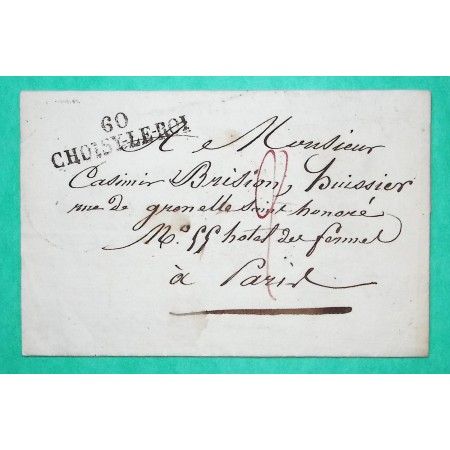 60
CHOISY-LE-ROI
A Monsieur
Casimir Brision, huissier
rue de grenelle Saint honoré
N.º 55 hotel des fermes
à Paris